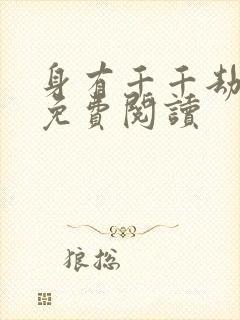 身有千千劫
免費閱讀
狼总